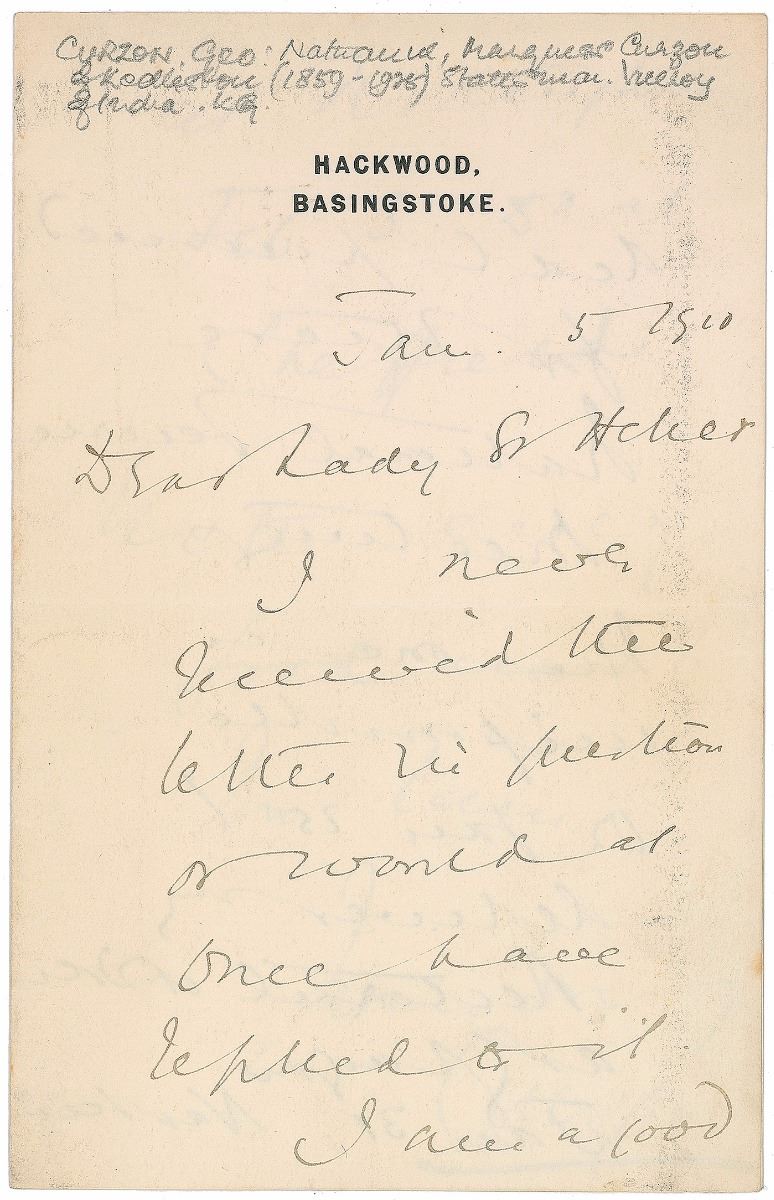 CURZON. Geo: Nathaniel, Marquess Curzon
of Kedleston (1859-1925) Statesman. Viceroy
of India. KG.
HACKWOOD,
BASINGSTOKE.
Jan. 5 1910
Dear Lady St Helier
I never
received the
letter in question
or would at
once have
replied to it.
I am a good